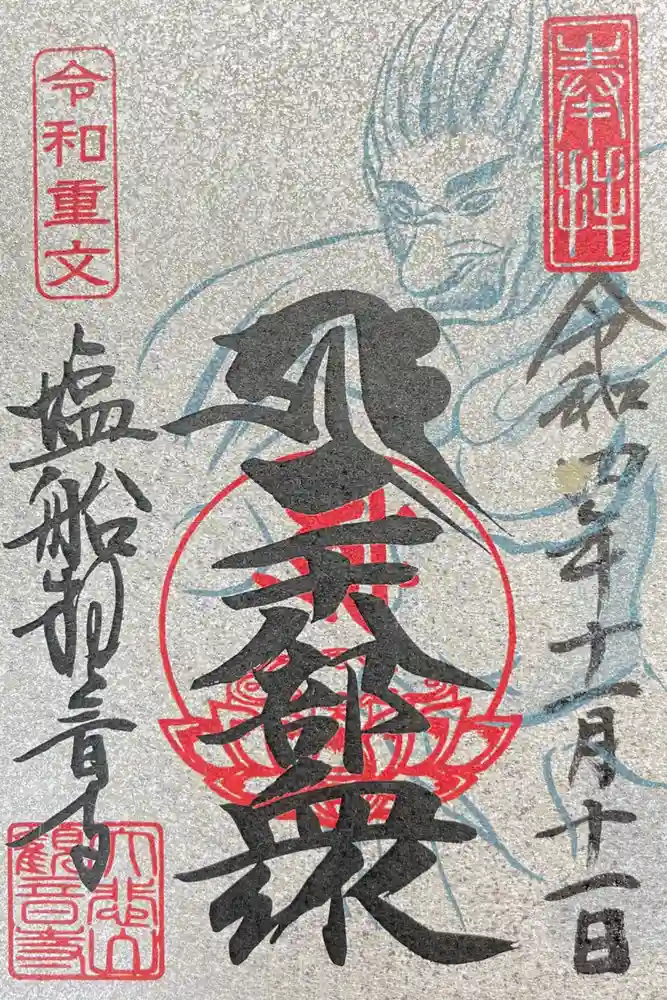 奉拝
令和四年十一月十一日
二十八部衆
令和重文
塩船観音寺
大悲山
觀音寺